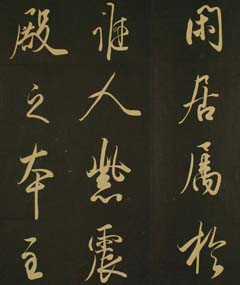 閑居属於
誰人紫震
殿之本主